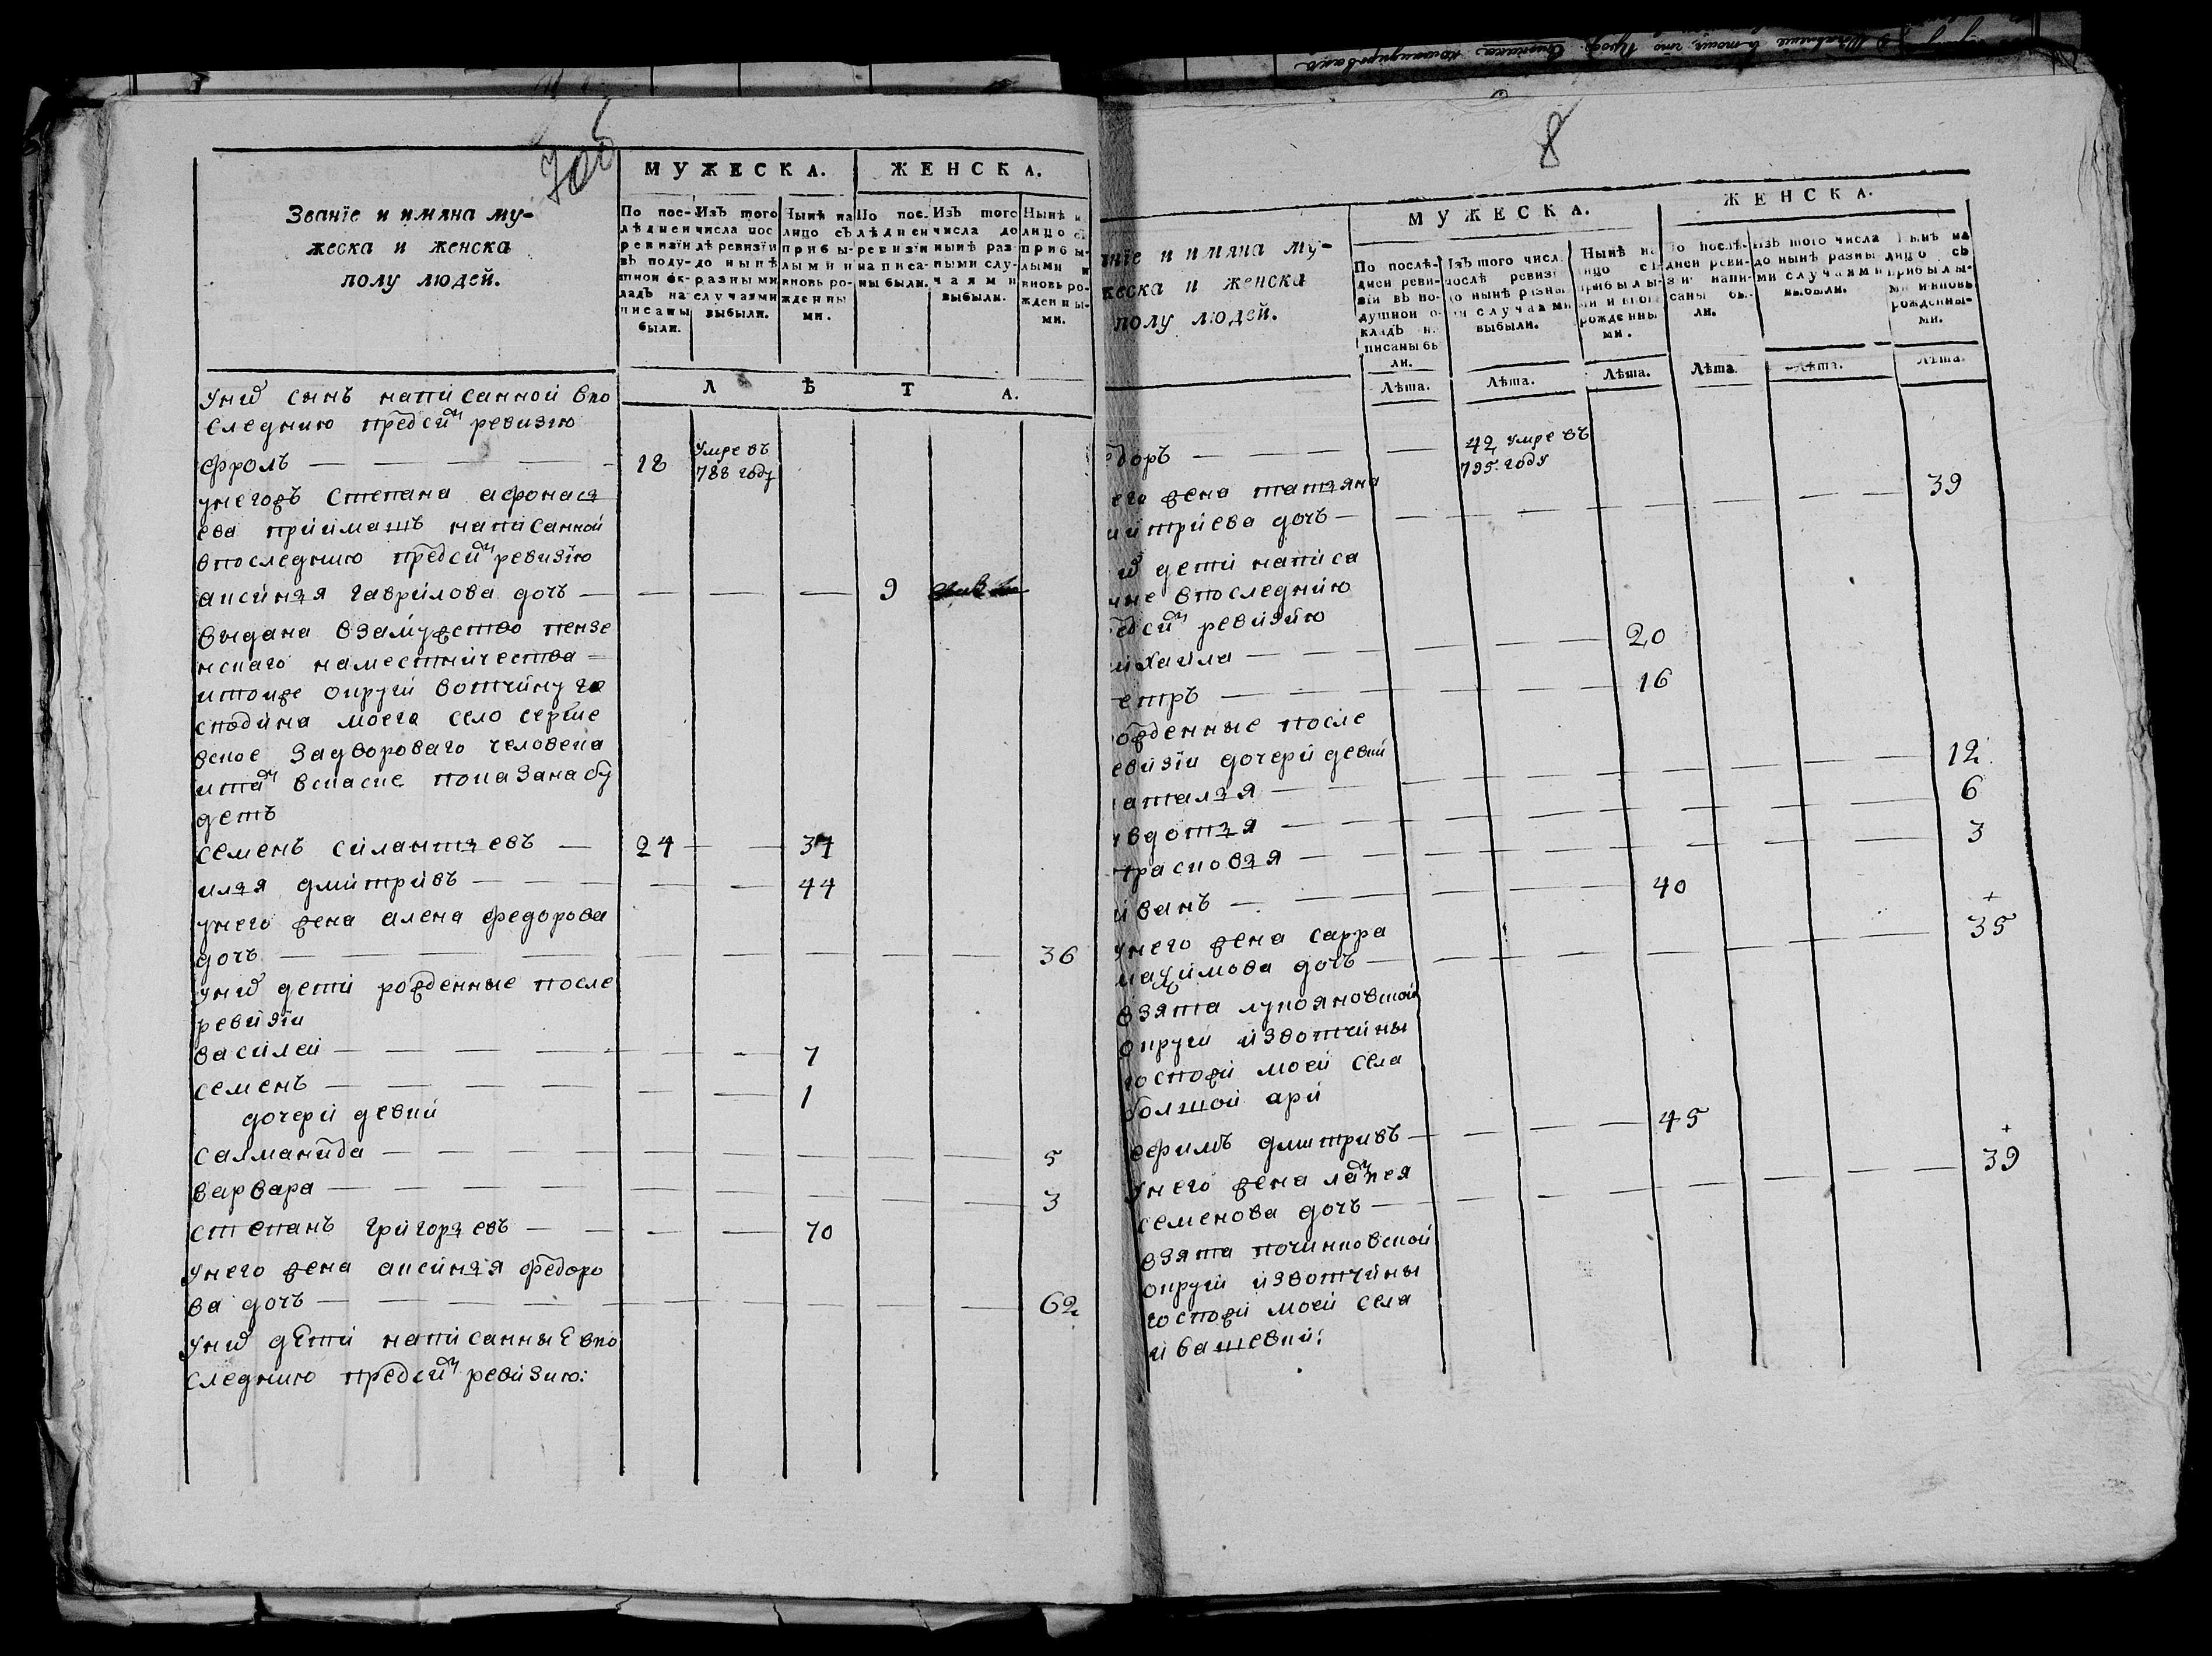 705
МУЖЕСКА. ЖЕНСКА.
Званїе и имяна му-
жеска и женска
полу людей.
По пос-
лѣдней
ревизїи
въ поду-
шной ок-
ладъ на-
писаны
были.
Изъ того
числа пос
лѣ ревизїи
до нынѣ
разными
случаями
выбыли.
Нынѣ на
лицо съ
прибы-
лыми и
вновь ро-
жденны
ми.
По пос-
лѣдней
ревизїи
написа-
ны были.
Изъ того
числа до
нынѣ раз-
ными слу-
чаями
выбыли.
Нынѣ н
лицо съ
прибы-
лыми и
вновь ро-
жденны-
ми.
Л Ѣ Т А.
у ниѡ сынъ написанной впо
следнию предсимъ ревизию
фролъ — 18 умре въ
788 году
унегожъ степана афонася
ева приимашъ написанной
впоследнию предсимъ ревизїю
аксинья гаврилова дочь — 9
выдана взамужество пензе
нскаго наместничества —
итоиже округи вотчину го
сподина моего село сергие
вское задвороваго человека
итамъ вспаске показана бу
детъ
семенъ силантьевъ — 24 — 37
илья дмитривъ — 44
унего жена алена федорова
дочь — 36
униѡ дети рожденные после
ревизїи
василей — 7
семенъ — 1
дочери девки
саламанида — 5
варвара — 3
степанъ григорьевъ — 70
унего жена аксинья федоро
ва дочь — 62
униѡ дети написанные впо
следнию предсимъ ревизию:
8
МУЖЕСКА. ЖЕНСКА.
анїе и имяна му-
жеска и женска
полу людей.
По послѣ-
дней реви-
зїи въ по-
душной о-
кладъ н
писаны бы
ли.
Изъ того числ
послѣ ревизї
до нынѣ разны
ми случаями
выбыли.
Нынѣ на
лицо съ
прибылы-
ми и внов
рожденны
ми.
По послѣ-
дней реви-
зїи напи-
саны бы-
ли.
Изъ того числа
до нынѣ разны
ми случаями
выбыли.
Нынѣ на
лицо съ
прибылы-
ми и вновь
рожденны-
ми.
Лѣта. Лѣта. Лѣта. Лѣта. Лѣта. Лѣта.
едоръ — 42 умре въ
795 году
его жена татьяна
митриева дочь — 39
иѡ дети написа
ные впоследнию
едсимъ ревизию
михайла — 20
петръ — 16
ожденные после
евизїи дочери девки
наталья — 12
авдотья — 6
прасковья — 3
иванъ — 40
унего жена сарра +
маѯимова дочь — 35
взята лукояновской
округи извотчины
госпожи моей села
болшой ари
ефимъ дмитривъ — 45
унего жена лампея +
семенова дочь — 39
взята починковской
округи извотчины
госпожи моей села
ивашевки: